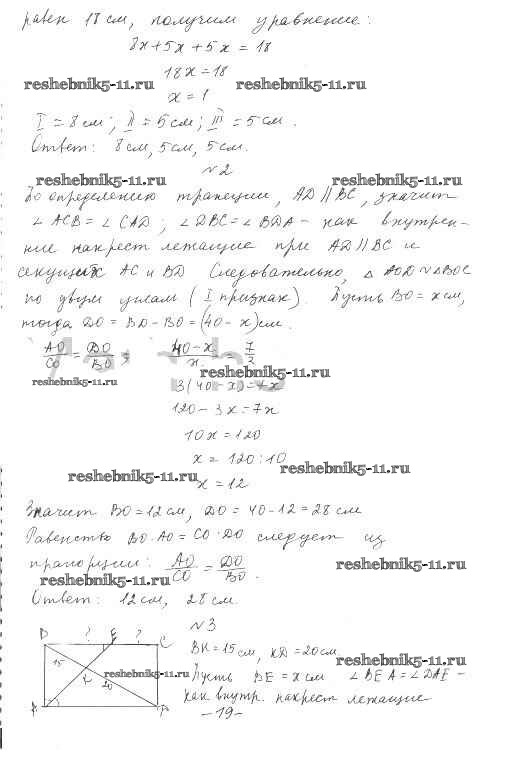 равен 18 см, получим уравнение:
8x+5x+5x = 18
18x = 18
reshebnik5-11.ru reshebnik5-11.ru
x = 1
I = 8 см; II = 5 см; III = 5 см.
Ответ: 8 см, 5 см, 5 см.
№2
reshebnik5-11.ru reshebnik5-11.ru
По определению трапеции, AD || BC, значит
∠ACB = ∠CAD; ∠DBC = ∠BDA – как внутрен-
ние накрест лежащие при AD || BC и
секущих AC и BD Следовательно, △AOD ∾ △BOC
по двум углам (I признак). Пусть BO = x см,
тогда DO = BD – BO = (40 – x) см.
AO/CO = DO/BO; 40-x/x 7/3
reshebnik5-11.ru reshebnik5-11.ru
3(40-x)=7x
120 – 3x = 7x
10x = 120
x = 120:10
reshebnik5-11.ru reshebnik5-11.ru
x = 12
Значит BO = 12 см, DO = 40 – 12 = 28 см
Равенство BO · AO = CO · DO следует из
пропорции: AO/CO = DO/BO.
reshebnik5-11.ru reshebnik5-11.ru
Ответ: 12 см, 28 см.
№3
B ? E ? C
BK = 15 см, KD = 20 см.
15 K 20
reshebnik5-11.ru reshebnik5-11.ru
Пусть BE = x см ∠BEA = ∠DAE –
как внутр. накрест лежащие
–19–